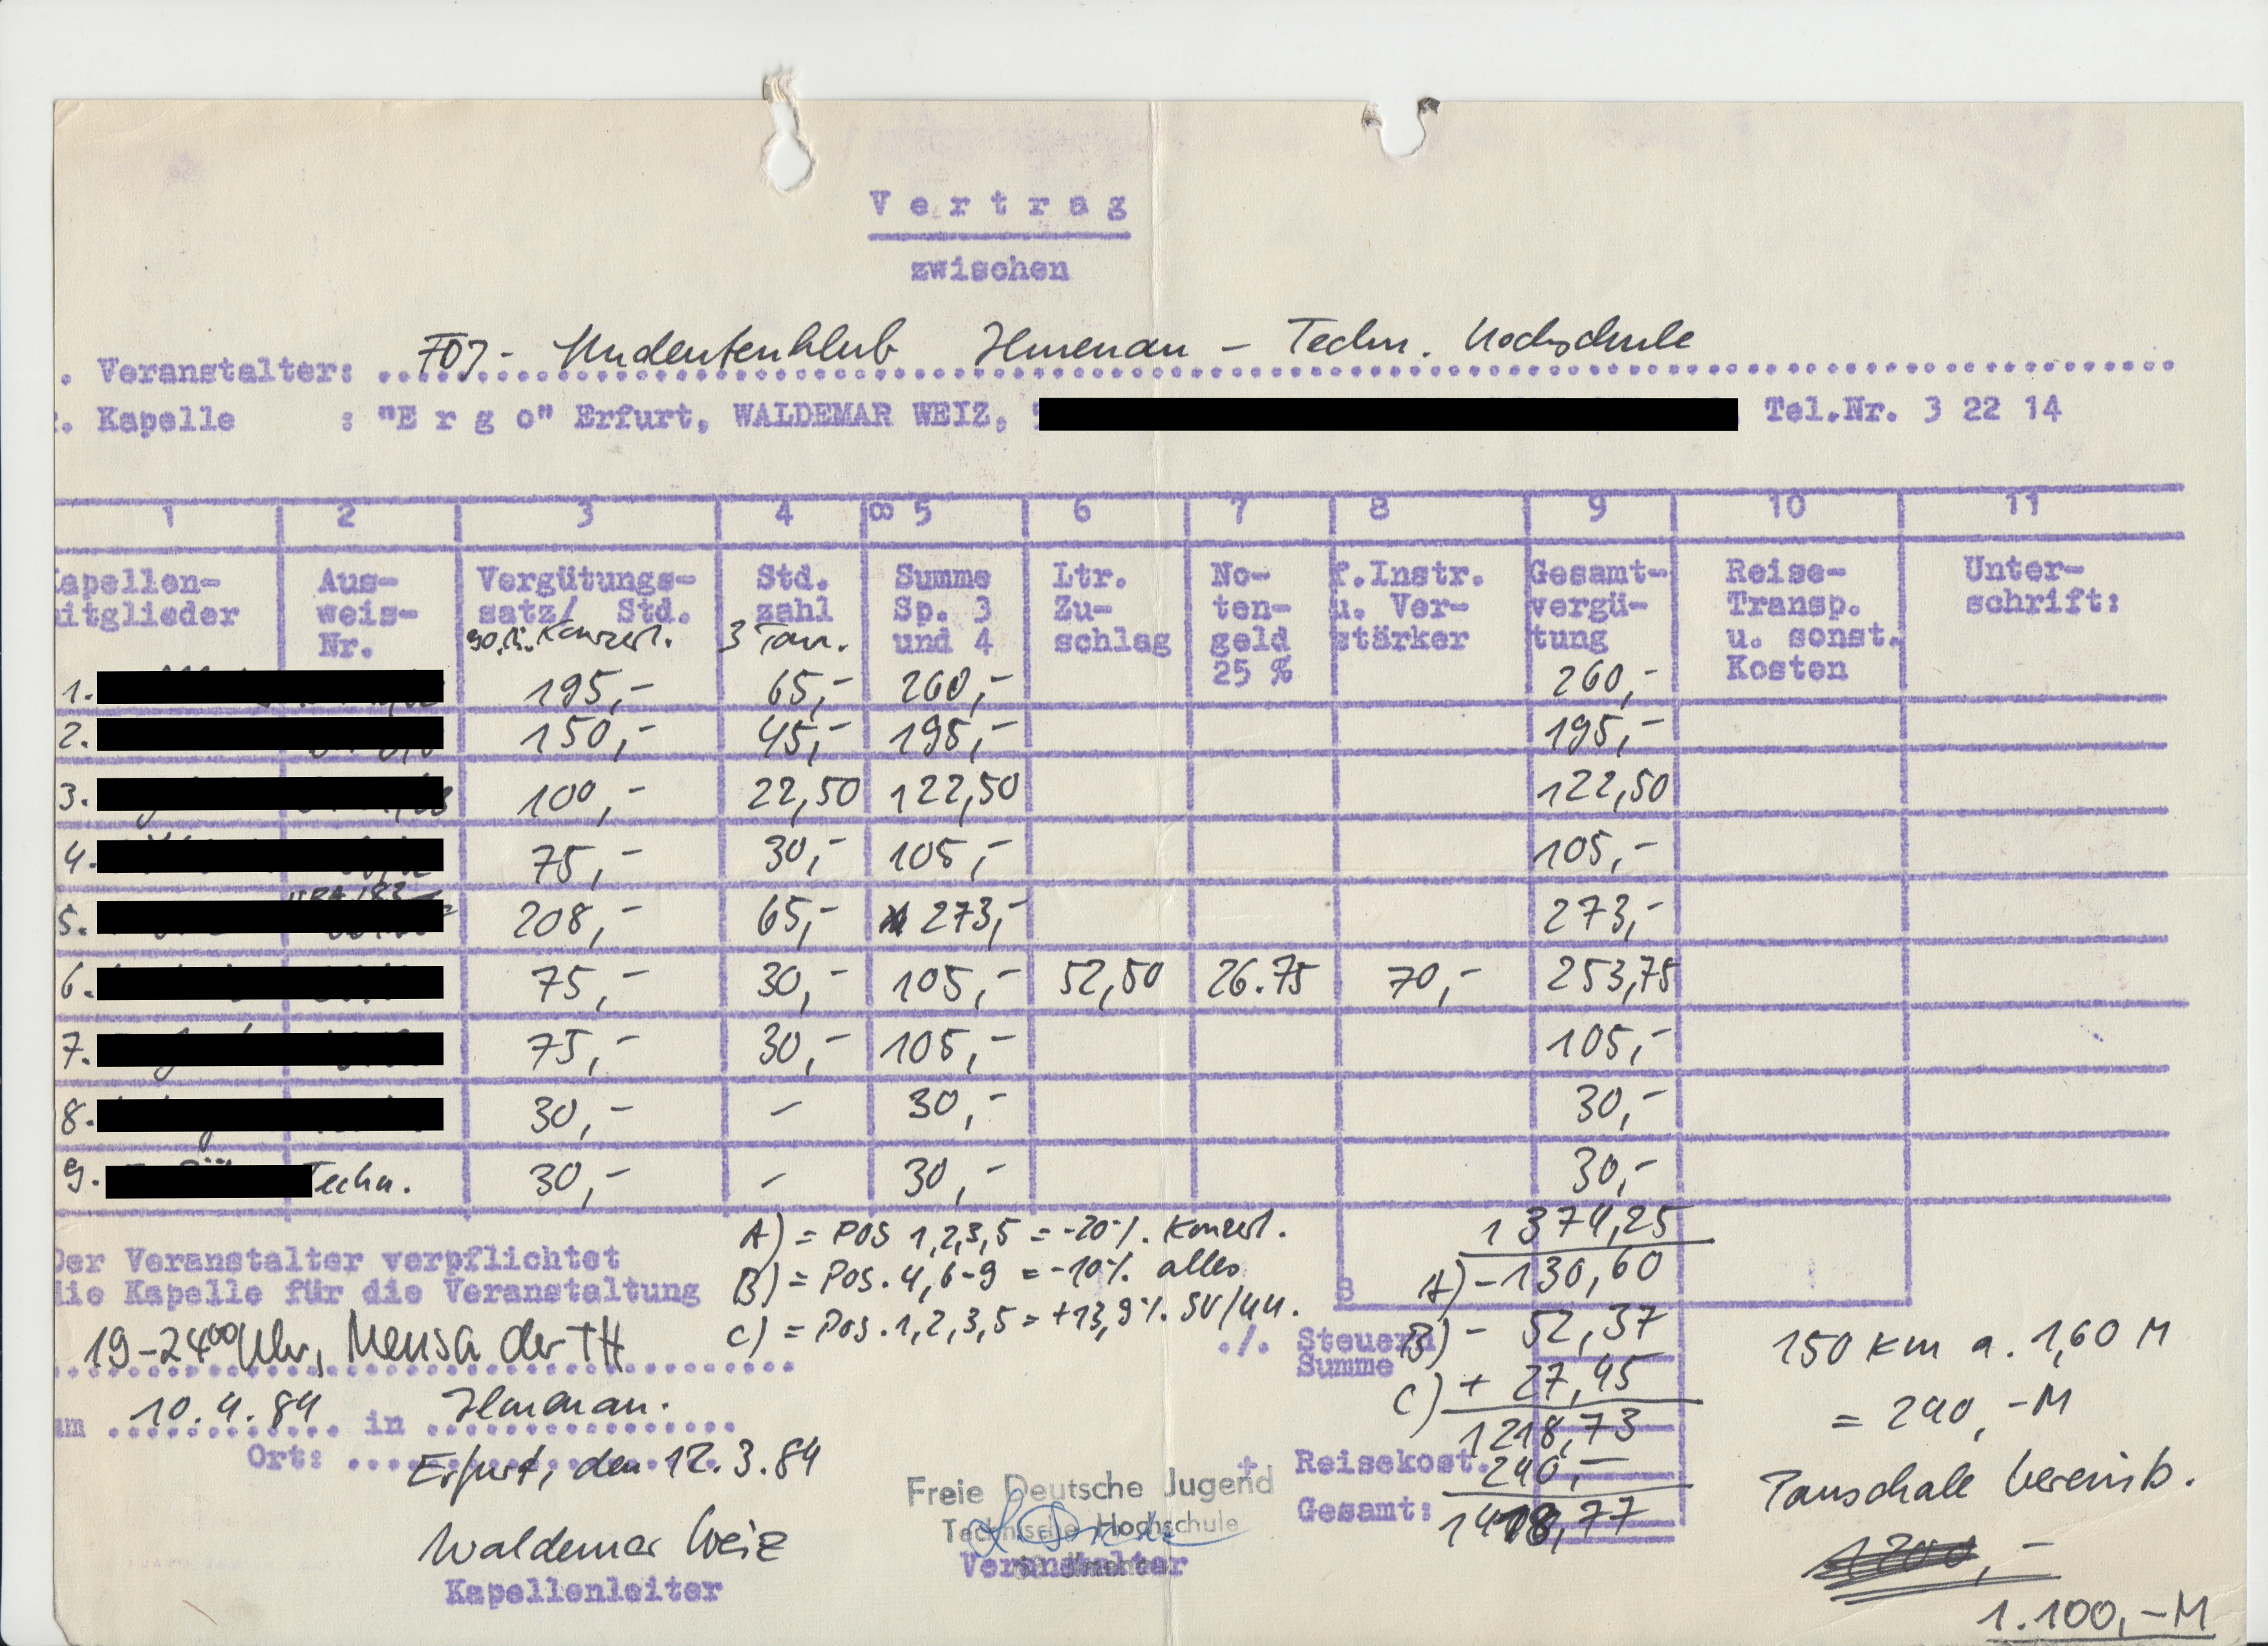 V e r t r a g
zwischen
. Veranstalter: FDJ - Studentenklub Ilmenau - Techn. Hochschule
. Kapelle : "E r g o" Erfurt, WALDEMAR WEIZ, Tel.Nr. 3 22 14
1 2 3 4 8 5 6 7 8 9 10 11
Kapellen- Aus- Vergütungs- Std. Summe Ltr. No- f.Instr. Gesamt- Reise- Unter-
mitglieder weis- satz/ Std. zahl Sp. 3 Zu- ten- u. Ver- vergü- Transp. schrift:
Nr. 90 Konzert. 3 Tan. und 4 schlag geld stärker tung u. sonst.
25 % Kosten
1. 195,- 65,- 260,- 260,-
2. 150,- 45,- 195,- 195,-
3. 100,- 22,50 122,50 122,50
4. 75,- 30,- 105,- 105,-
5. 208,- 65,- 273,- 273,-
6. 75,- 30,- 105,- 52,50 26.75 70,- 253,75
7. 75,- 30,- 105,- 105,-
8. 30,- - 30,- 30,-
9. Techn. 30,- - 30,- 30,-
1374,25
A) = POS 1,2,3,5 = -20%. Konzert.
B) = Pos. 4, 6-9 = -10% alles
C) = Pos. 1,2,3,5 = +13,9%. SV/
Der Veranstalter verpflichtet
die Kapelle für die Veranstaltung
19-2400 Uhr, Mensa der TH
am 10.4.84 in Ilmenau.
Ort: Erfurt, den 12.3.84
Waldemar Weiz
Kapellenleiter
Freie Deutsche Jugend
Technische Hochschule
Ilmenau
Veranstalter
8
A) -130,60
./. Steuern B) - 52,37
Summe
C) + 27,45
1218,73
+ Reisekost. 240,-
Gesamt: 77
150 km a. 1,60 M
= 240,-M
Pauschale vereinb.
1200,-
1.100,-M